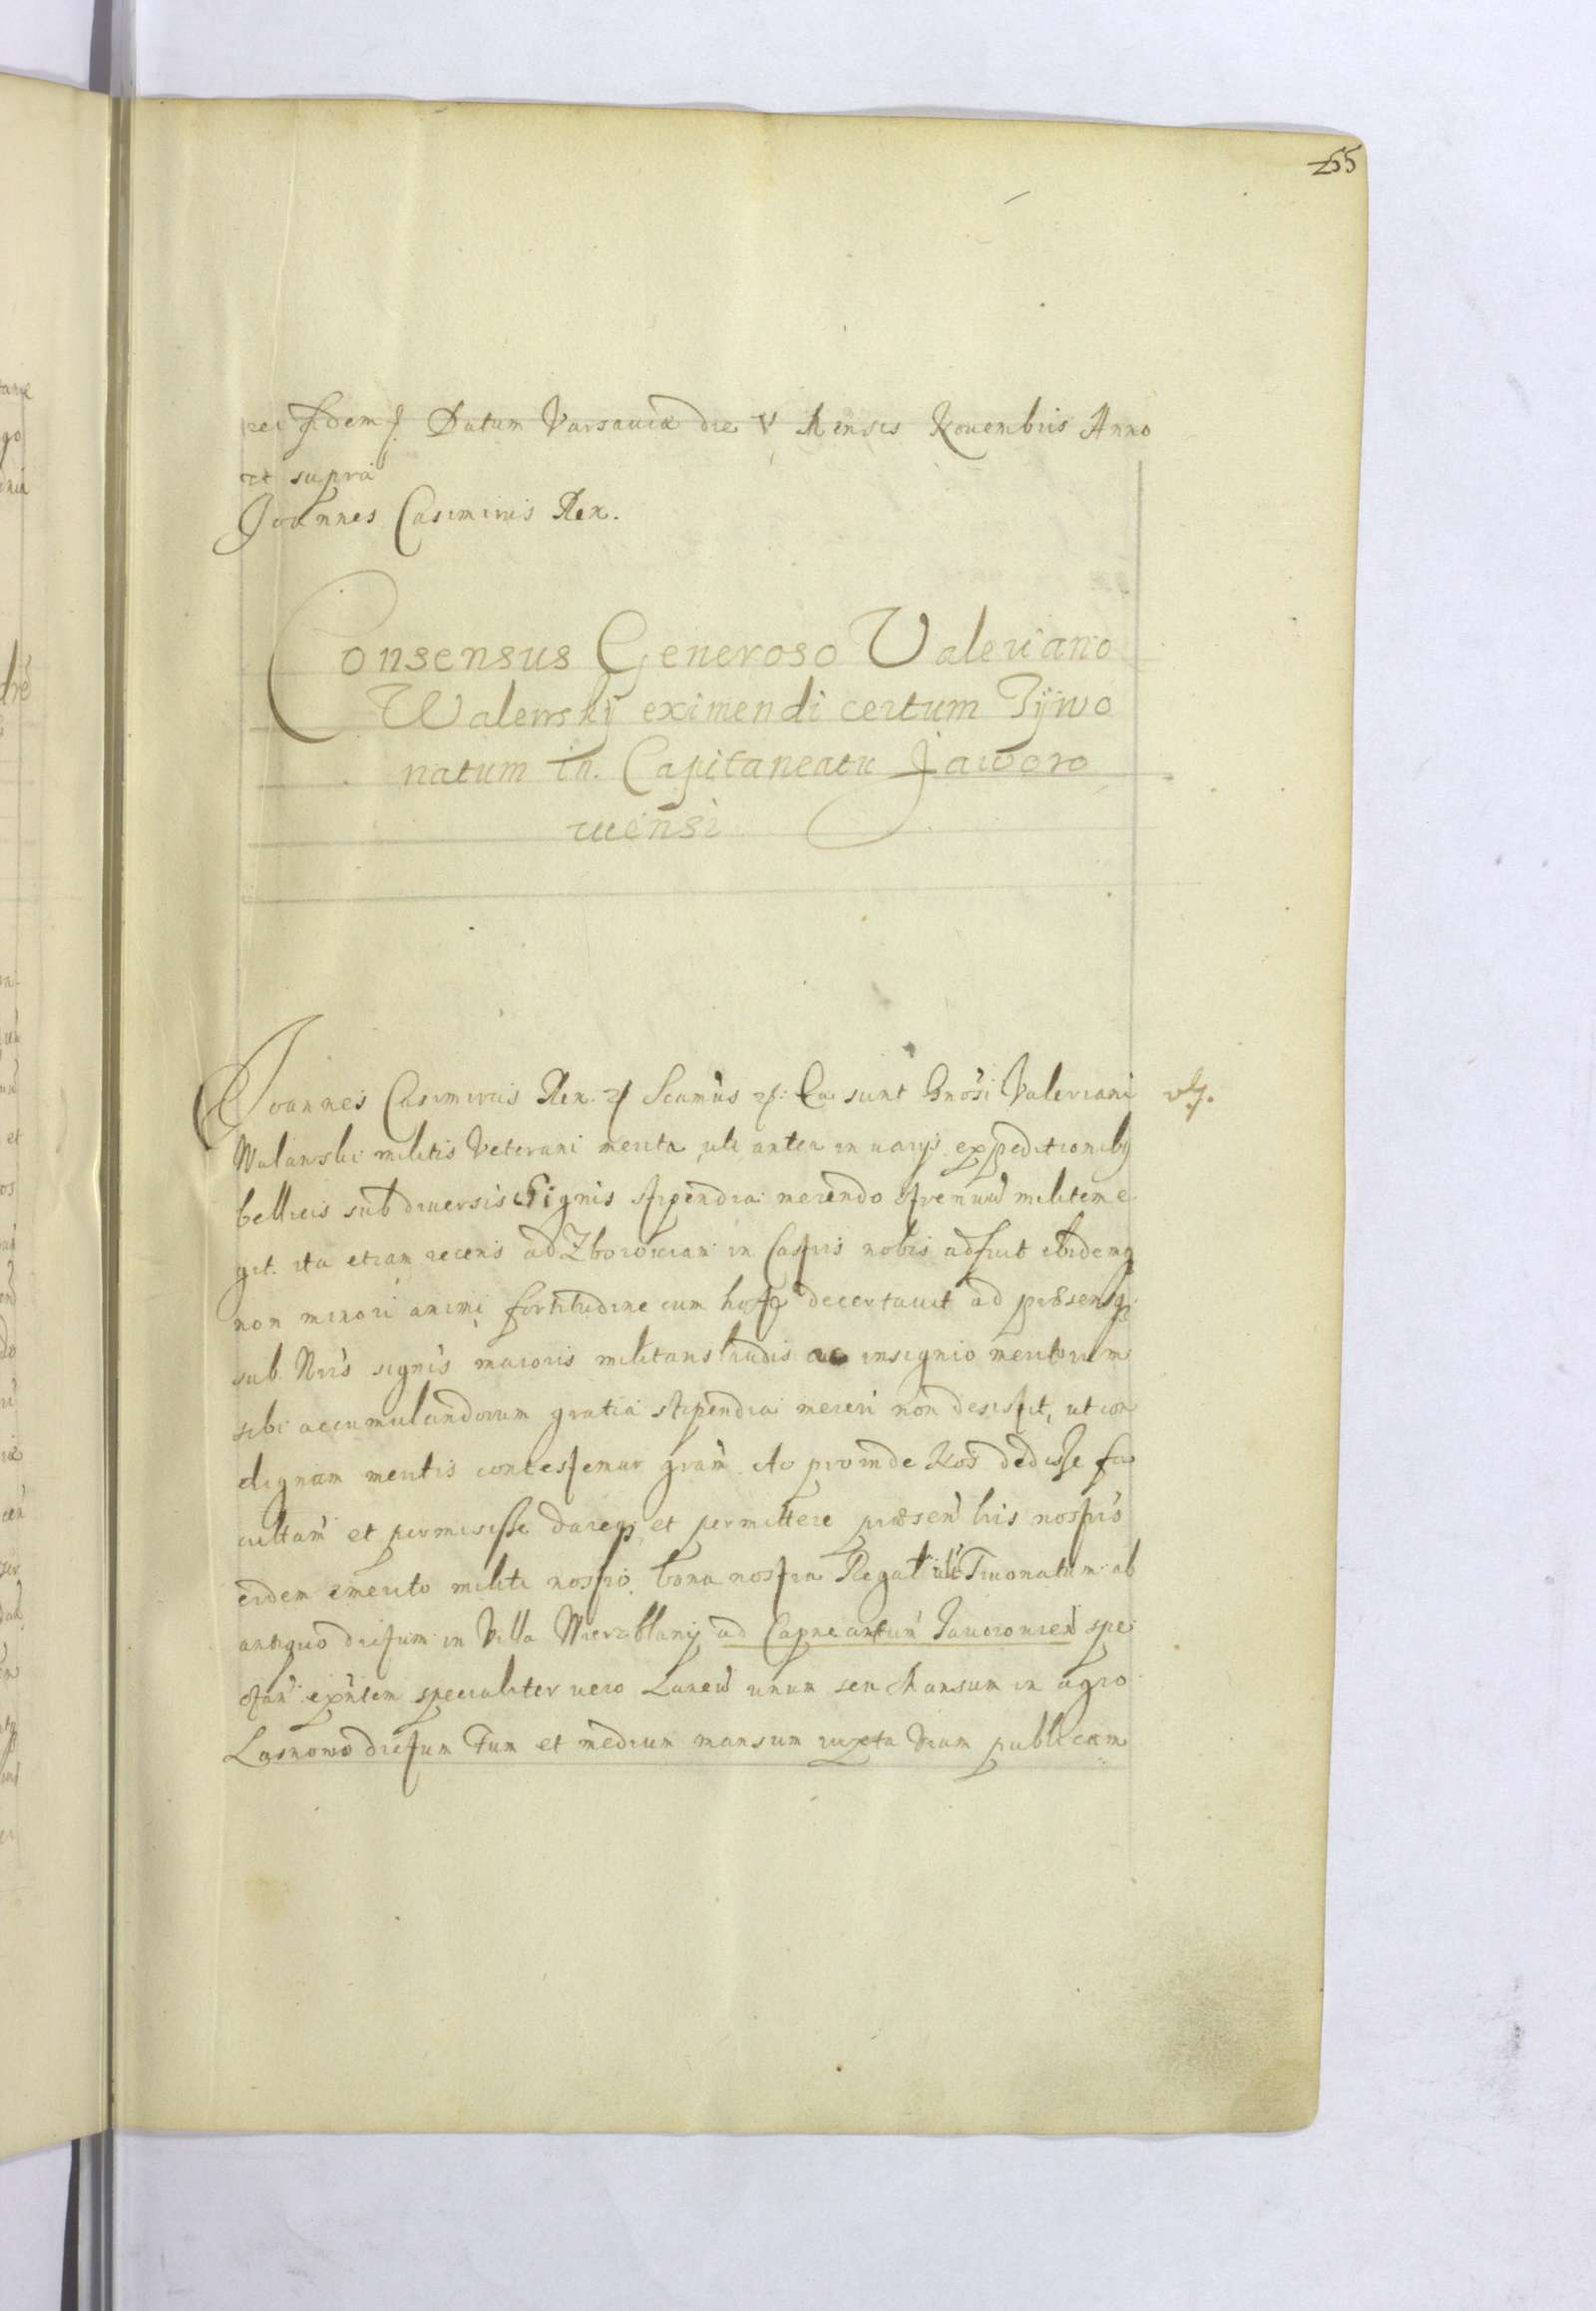 255
rei fidem Datum Varsauiæ die V Mensis Nouembris Anno
ut supra
Joannes Casimirus Rex.
Consensus Generoso Valeriano
Walewskÿ eximendi certum Tÿwo
natum in Capitaneatu Jaworo
uiensi
Joannes Casimirus Rex Ea sunt Gnosi Valeriani
Walewski militis Veterani merita, uti antea in uarijs expeditionibq
bellicis sub diuersis Signis stipendia merendo strenuũ militem e
git. ita etiam recens ad Zborouiam in Castris nobis adfuit ibidemq
non minori animi fortitudine cum hoste decertauit ad præsensq
sub Nris signis maioris militans laudis ac insignio meritorum
sibi accumulandorum gratia stipendia mereri non desistit, ut con
dignam meritis contestemur gram. Ac proinde Nos dedisse fa
cultam et permisisse dareq et permittere præsen lris nostris
eidem emerito militi nostro, bona nostra Regal Tiuonatum ab
antiquo dictum in Villa Wierzblany ad Capneantum Jauorouien spe
ctan eximen specialiter uero Laneũ unum seu Mansum in agro
Lasnowo dictum Tum et medium mansum iuxta Viam publicam